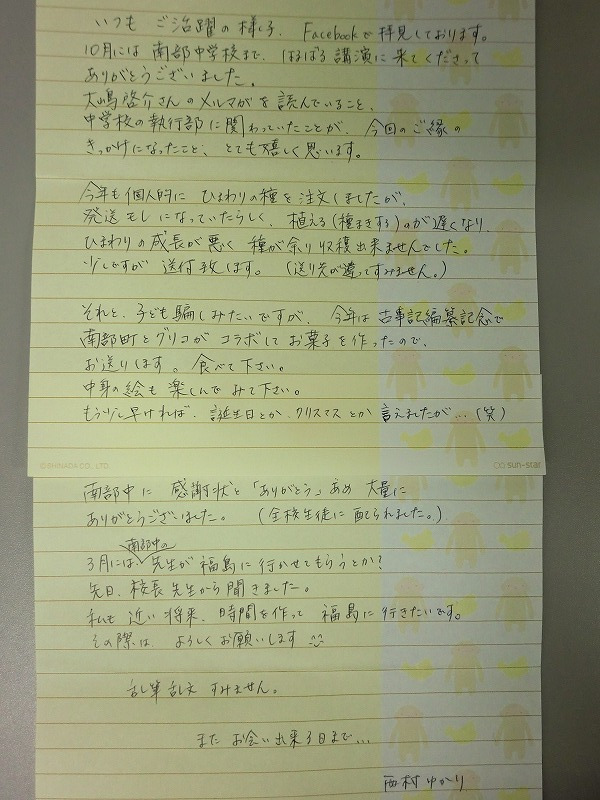 いつも ご活躍の様子、Facebookで拝見しております。
10月には 南部中学校まで、はるばる講演に来てくださって
ありがとうございました。
大嶋啓介さんのメルマガを読んでいること、
中学校の執行部に関わっていたことが、今回のご縁の
きっかけになったこと、とても嬉しく思います。
今年も個人的に ひまわりの種を注文しましたが、
発送モレになっていたらしく、植える(種まきする)のが遅くなり、
ひまわりの成長が悪く 種が余り収穫出来ませんでした。
少しですが 送付致します。 (送り先が違ってすみません。)
それと、子ども騙しみたいですが、今年は古事記編纂記念で
南部町とグリコがコラボしてお菓子を作ったので、
お送りします。食べて下さい。
中身の絵も楽しんでみて下さい。
もう少し早ければ、誕生日とか、クリスマスとか言えましたが…(笑)
©SHINADA CO., LTD.
sun-star
南部中に 感謝状と「ありがとう」あめ 大量に
ありがとうございました。 (全校生徒に配られました。)
南部中の
3月には、先生が福島に行かせてもらうとか?
先日、校長先生から聞きました。
私も近い将来、時間を作って福島に行きたいです。
その際は よろしくお願いします
乱筆乱文すみません。
また お会い出来る日まで…
西村ゆかり